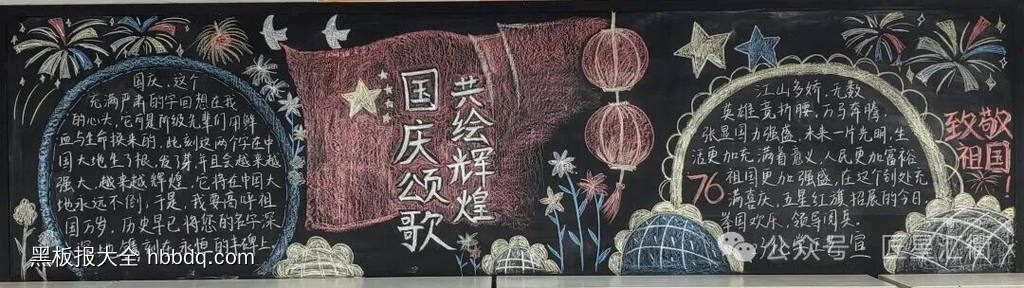 国庆、这个
充满严肃的字回想在我
的心头,它可是阶级先辈们用鲜
血与生命换来的,此刻这两个字在中
国大地生了根,发了芽并且会越来越
强大,越来越辉煌,它将在中国大
地永远不倒,于是,我要高呼祖
国万岁,历史早已将您的名字深
刻在永恒的丰碑上
共绘辉煌
国庆颂歌
江山多娇,无数
英雄竞折腰,万马奔腾,
张显国力强盛,未来一片光明,生
活更加充满着意义,人民更加富裕
祖国更加强盛,在这个刻处充
满喜庆,五星红旗招展的今日,
举国欢乐,领导阅兵
76
致敬
祖国!
黑板报大全 hbbdq.com
公众号